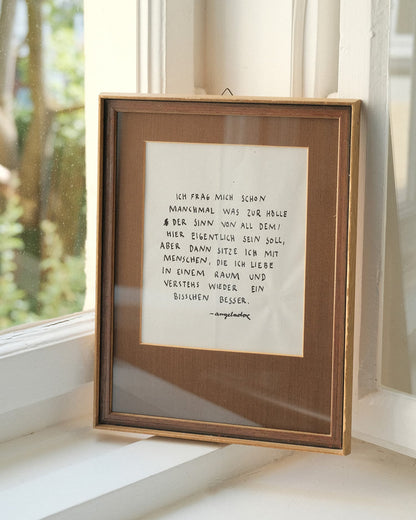 ICH FRAG MICH SCHON
MANCHMAL WAS ZUR HÖLLE
DER SINN VON ALL DEM
HIER EIGENTLICH SEIN SOLL,
ABER DANN SITZE ICH MIT
MENSCHEN, DIE ICH LIEBE
IN EINEM RAUM UND
VERSTEHS WIEDER EIN
BISSCHEN BESSER.